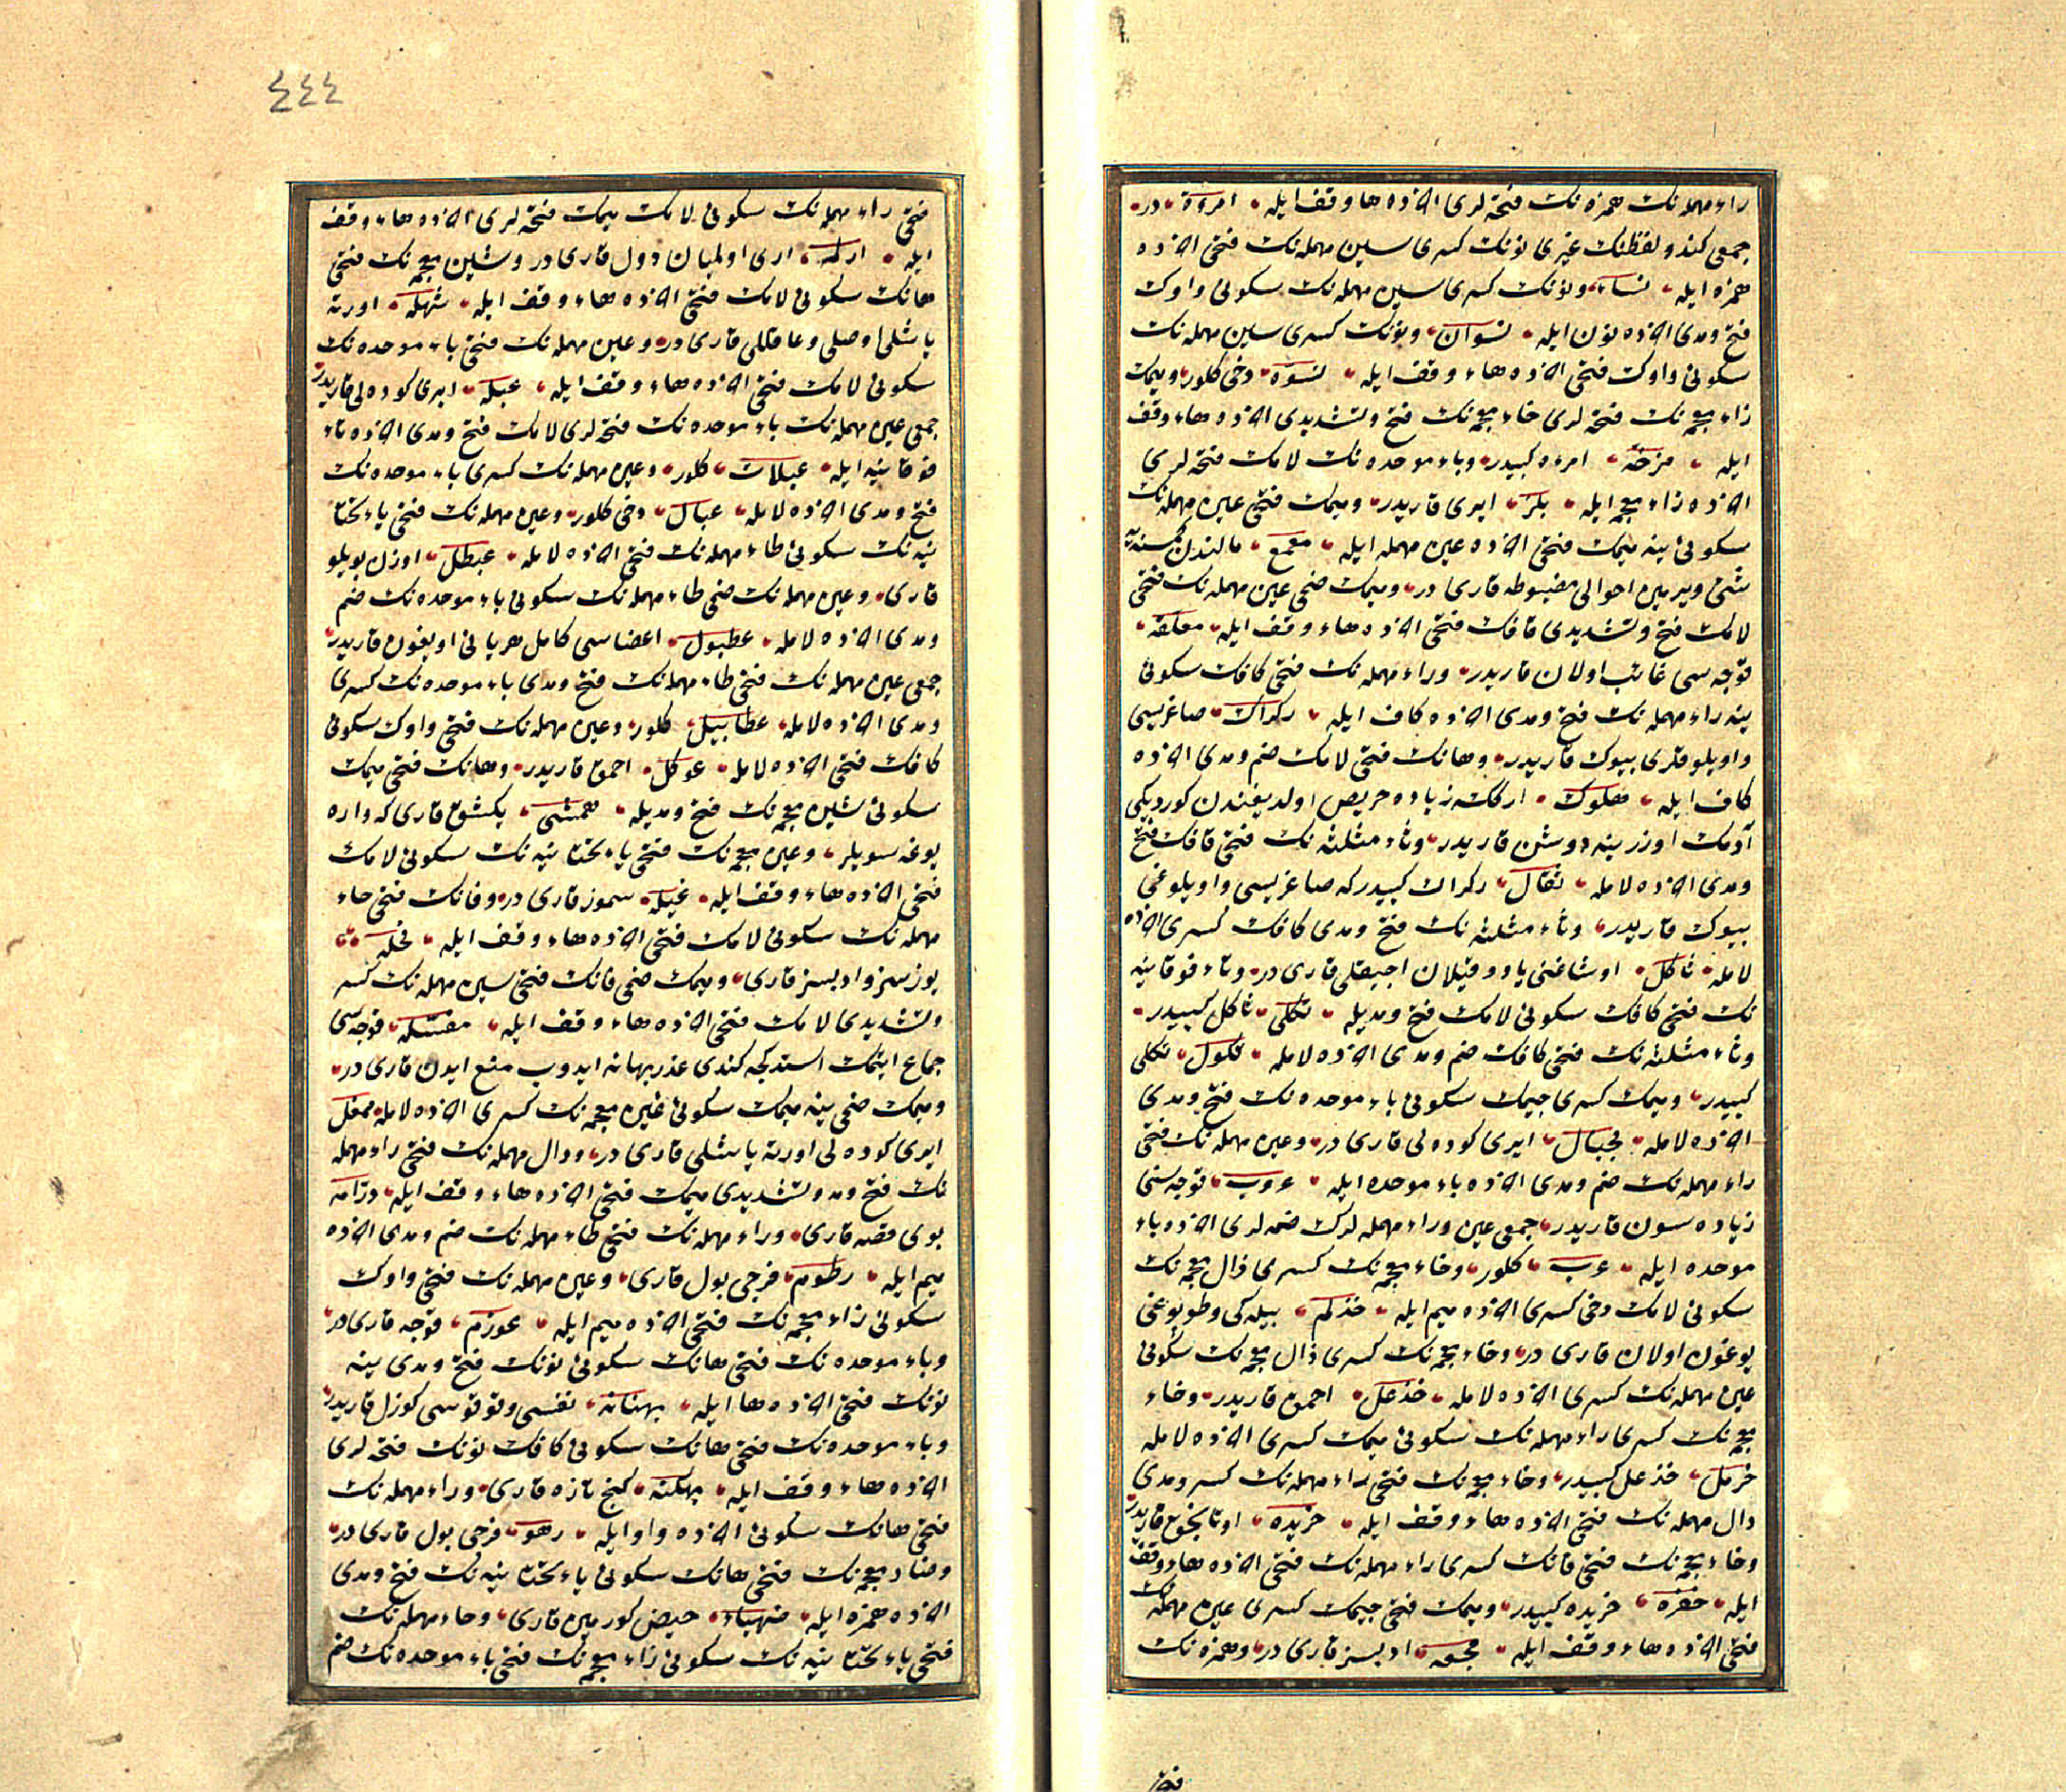 راء مهمله نك همزه نك فتحه لرى اخرده ها وقف ايله امرءة در
جمعى كندو لفظنك غيرى نونك كسرى سين مهمله نك فتحى اخرده
همزه ايله نساء ونونك كسرى سين مهمله نك سكونى واوك
فتح ومدى اخرده نون ايله نسوان ونونك كسرى سين مهمله نك
سكونى واوك فتحى اخرده هاء وقف ايله نسوة دخى كلور وميمك
زاء معجمه نك فتحه لرى خاء معجمه نك فتح وتشديدى اخرده هاء وقف
ايله مزخة امرءه كبيدر وباء موحده نك لامك فتحه لرى
اخرده زاء معجمه ايله بلز ايرى قاريدر وميمك فتحى عين مهمله نك
سكونى ينه ميمك فتحى اخرده عين مهمله ايله معمع مالندن كمسنه يه
شئ ويرمين احوالى مضبوطه قارى در وميمك ضمى عين مهمله نك فتحى
لامك فتح وتشديدى قافك فتحى اخرده هاء وقف ايله معلقه
قوجه سى غائب اولان قاريدر وراء مهمله نك فتحى كافك سكونى
ينه راء مهمله نك فتح ومدى اخرده كاف ايله ركراك صاغريسى
واويلوقلرى بيوك قاريدر وهانك فتحى لامك ضم ومدى اخرده
كاف ايله هلوك اركك زياده حريص اولديغندن كورديكى
آدمك اوزرينه دوشن قاريدر وثاء مثلثه نك فتحى قافك فتح
ومدى اخرده لامله ثقال ركراك كبيدر كه صاغريسى واويلوغى
بيوك قاريدر وثاء مثلثه نك فتح ومدى كافك كسرى اخرده
لامله ثاكل اوشاغنى ياوو قيلان اجيقلى قارى در وتاء فوقانيه
نك فتحى كافك سكونى لامك فتح ومديله ثكلى ثاكل كبيدر
وثاء مثلثه نك فتحى كافك ضم ومدى اخرده لامله ثكول ثكلى
كبيدر وميمك كسرى جيمك سكونى باء موحده نك فتح ومدى
اخرده لامله مجبال ايرى كوده لى قارى در وعين مهمله نك فتحى
راء مهمله نك ضم ومدى اخرده باء موحده ايله عروب قوجه سنى
زياده سون قاريدر جمعى عين وراء مهمله لرك ضمه لرى اخرده باء
موحده ايله عرب كلور وخاء معجمه نك كسرى ذال معجمه نك
سكونى لامك دخى كسرى اخرده ميم ايله خذلم بيله كى وطوبوغى
يوغون اولان قارى در وخاء معجمه نك كسرى ذال معجمه نك سكونى
عين مهمله نك كسرى اخرده لامله خذعل احمق قاريدر وخاء
معجمه نك كسرى راء مهمله نك سكونى ميمك كسرى اخرده لامله
خرمل خذعل كبيدر وخاء معجمه نك فتحى راء مهمله نك كسر ومدى
دال مهمله نك فتحى اخرده هاء وقف ايله خريده اوتانجق قاريدر
وخاء معجمه نك فتحى فانك كسرى راء مهمله نك فتحى اخرده هاء وقف
ايله خفره خريده كبيدر وميمك فتحى جيمك كسرى عين مهمله نك
فتحى اخرده هاء وقف ايله مجعه ادبسز قارى در وهمزه نك
٤٤٤
فتحى راء مهمله نك سكونى لامك ميمك فتحه لرى اخرده هاء وقف
ايله ارمله ارى اولميان دول قارى در وشين معجمه نك فتحى
هانك سكونى لامك فتحى اخرده هاء وقف ايله شهله اورته
ياشلى اوصلى وعاقللى قارى در وعين مهمله نك فتحى باء موحده نك
سكونى لامك فتحى اخرده هاء وقف ايله عبله ايرى كوده لى قاريدر
جمعى عين مهمله نك باء موحده نك فتحه لرى لامك فتح ومدى اخرده تاء
فوقانيه ايله عبلات كلور وعين مهمله نك كسرى باء موحده نك
فتح ومدى اخرده لامله عبال دخى كلور وعين مهمله نك فتحى ياء تحتا
نيه نك سكونى طاء مهمله نك فتحى اخرده لامله عيطل اوزن بويلو
قارى وعين مهمله نك ضمى طاء مهمله نك سكونى باء موحده نك ضم
ومدى اخرده لامله عطبول اعضاسى كامل هر يانى اويغون قاريدر
جمعى عين مهمله نك فتحى طاء مهمله نك فتح ومدى باء موحده نك كسرى
ومدى اخرده لامله عطابيل كلور وعين مهمله نك فتحى واوك سكونى
كافك فتحى اخرده لامله عوكل احمق قاريدر وهانك فتحى ميمك
سكونى شين معجمه نك فتح ومديله همشى يكشق قارى كه واره
يوغه سويلر وغين معجمه نك فتحى ياء تحتانيه نك سكونى لامك
فتحى اخرده هاء وقف ايله غيله سموز قارى در وفانك فتحى حاء
مهمله نك سكونى لامك فتحى اخرده هاء وقف ايله فحله
يوزسز وادبسز قارى وميمك ضمى فانك فتحى سين مهمله نك كسر
وتشديدى لامك فتحى اخرده هاء وقف ايله مفسله قوجه سى
جماع ايتمك استدكجه كندى عذر بهانه ايدوب منع ايدن قارى در
وميمك ضمى ينه ميمك سكونى غين معجمه نك كسرى اخرده لامله ممغل
ايرى كوده لى اورته ياشلى قارى در ودال مهمله نك فتحى راء مهمله
نك فتح ومد وتشديدى ميمك فتحى اخرده هاء وقف ايله درامه
بوى قصه قارى وراء مهمله نك فتحى طاء مهمله نك ضم ومدى اخرده
ميم ايله رطوم فرجى بول قارى وعين مهمله نك فتحى واوك
سكونى زاء معجمه نك فتحى اخرده ميم ايله عوزم قوجه قارى در
وباء موحده نك فتحى هانك سكونى نونك فتح ومدى ينه
نونك فتحى اخرده ها ايله بهنانه نفسى وقوقوسى كوزل قاريدر
وباء موحده نك فتحى هانك سكونى كافك نونك فتحه لرى
اخرده هاء وقف ايله بهكنه كنج تازه قارى وراء مهمله نك
فتحى هانك سكونى اخرده واو ايله رهو فرجى بول قارى در
وضاد معجمه نك فتحى هانك سكونى ياء تحتانيه نك فتح ومدى
اخرده همزه ايله ضهياء حيض كورمين قارى وحاء مهمله نك
فتحى ياء تحتانيه نك سكونى زاء معجمه نك فتحى باء موحده نك ضم